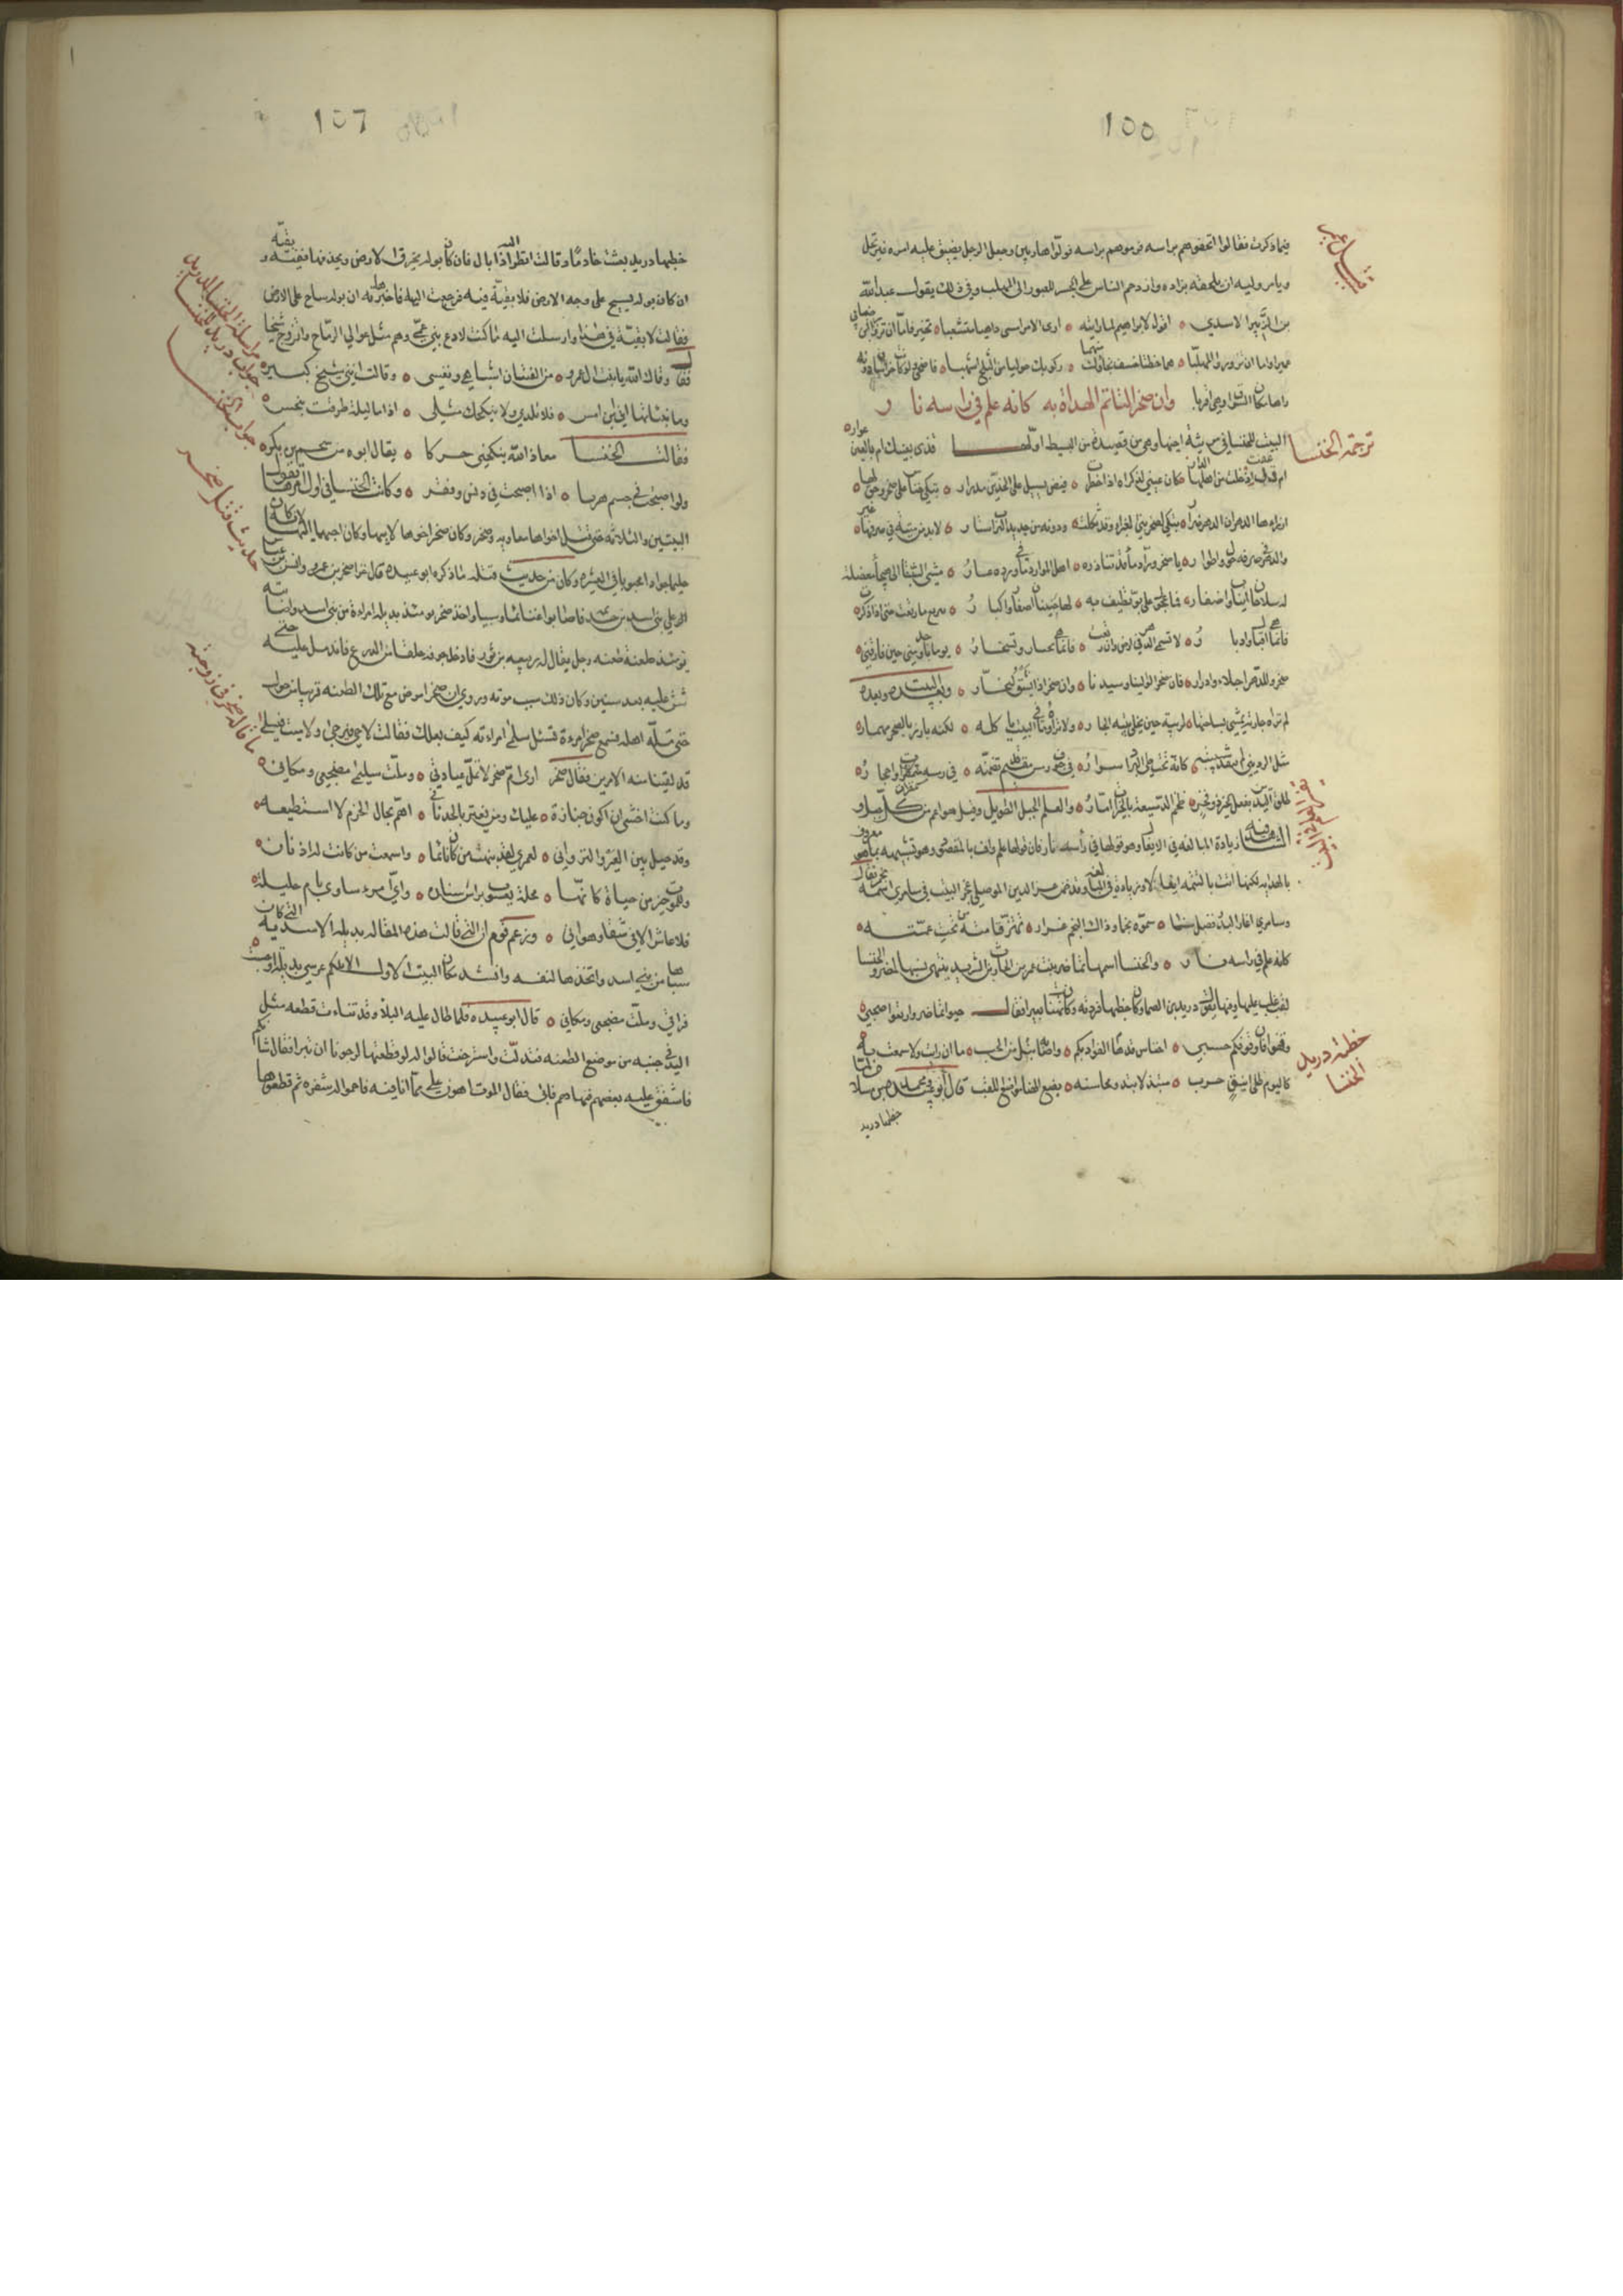 100
فيما ذكرت فقالوا اتحفوهم براسه فرموهم براسه فولوا هاربين وجعل الرجل يضيق عليه امره فيرتحل
ويامر وليه ان يلحقه بزاده وازدحم الناس على الجسر للعبور الى المهلب وفي ذلك يقول عبد الله
بن الزبير الاسدي ٥ اقول لابراهيم لما رايته ٥ ارى الامر امسى داهيا متشعبا ٥ تخير فاما ان تزور ابن ضابي
عميرا واما ان تزور المهلبا ٥ هما خطتا خسف نجاؤك منهما ٥ ركوبك حوليا من الثلج اشهبا ٥ فاضحى لو كانت خراسان دونه
راها مكان السوق او هي اقربا وان صخرا لتاتم الهداة به كانه علم في راسه نار
ترجمة الخنسا
البيت للخنسا في مرثية اخيها وهي من قصيدة من البسيط اولها قذى بعينك ام بالعين عوار ٥
ام ذرفت اذ خلت من اهلها الدار كان عيني لذكراه اذا خطرت ٥ فيض يسيل على الخدين مدرار ٥ تبكي خناس على صخر وحق لها ٥
اذ رابها الدهر ان الدهر ضرار ٥ تبكي لصخر هي العبرى وقد ثكلت ٥ ودونه من جديد الترب استار ٥ لا بد من ميتة في صرفها غير ٥
والدهر في صرفه حول واطوار ٥ يا صخر وراد ماء قد تناذره ٥ اهل الموارد ما في ورده عار ٥ مشى السبنتى الى هيجاء معضلة
له سلاحان انياب واظفار ٥ فما عجول على بو تطيف به ٥ لها حنينان اصغار واكبار ٥ ترتع ما رتعت حتى اذا ذكرت ٥
فانما هي اقبال وادبار ٥ لا تسمن الدهر في ارض وان رتعت ٥ فانما هي تحنان وتسجار ٥ يوما باوجد مني حين فارقني ٥
صخر وللدهر احلاء وامرار ٥ فان صخرا لوالينا وسيدنا ٥ وان صخرا اذا نشتو لنحار ٥ وبعده البيت وبعده
لم تراه جارة يمشي بساحتها ٥ لريبة حين يخلي بيته الجار ٥ ولا تراه وما في البيت ياكله ٥ لكنه بارز بالصحن مهمار ٥
مثل الرديني لم تنفد شبيبته ٥ كانه تحت طي البرد اسوار ٥ في جوف رمس مقيم قد تضمنه ٥ في رمسه مقمطرات واحجار ٥
طلق اليدين بفعل الخير ذو فخر ٥ ضخم الدسيعة بالخيرات امار ٥ والعلم الجبل الطويل وقيل هو اعم من كل جبل و
الشاهد فيه زيادة المبالغة في الايغال وهو قولها في راسه نار فان قولها علم واف بالمقصود وهو تشبيهه بما هو معروف
بالهداية لكنها اتت بالتتمة ايغالا وزيادة في المبالغة وقد ضمن عز الدين الموصلي عجز البيت في سامري اسمه نجم فقال
وسامري اعار البدر فضل سنا ٥ سموه نجما وذاك النجم غرار ٥ تهتز قامته من تحت عمته ٥
كانه علم في راسه نار ٥ والخنسا اسمها تماضر بنت عمرو بن الحارث بن الشريد ينتهي نسبها لمضر والخنسا
لقب غلب عليها وفيها يقول دريد بن الصمة وكان خطبها فردته وكان رآها تهنا بعيرا فقال حيوا تماضر واربعوا صحبي ٥
وقفوا فان وقوفكم حسبي ٥ اخناس قد هام الفؤاد بكم ٥ واصابه تبل من الحب ٥ ما ان رايت ولا سمعت به ٥
كاليوم طالي اينق جرب ٥ متبذلا تبدو محاسنه ٥ يضع الهنا مواضع النقب قال ابو محمد بن سلام لما
خطبة دريد
الخنسا
خطبها دريد
107
خطبها دريد بعثت خادما وقالت انظر اليه اذا بال فان كان بوله يخرق الارض ويخد فيها ففيه بقية و
ان كان بوله يسيح على وجه الارض فلا بقية فيه فرجعت اليها فاخبرتها ان بوله ساح على الارض
فقالت لا بقية في هذا وارسلت اليه ما كنت لادع بني عمي وهم مثل عوالي الرماح واتزوج شيخا
فقال وقاك الله يا بنت ال عمرو ٥ من الفتيان اشباهي ونفسي ٥ وقالت انني شيخ كبير ٥
وما نباتها اني ابن امس ٥ فلا تلدي ولا ينكحك مثلي ٥ اذا ما ليلة طرقت بنحس ٥
فقالت الخنسا معاذ الله ينكحني حبركا ٥ يقال ابوه من جشم بن بكر ٥
ولو اصبحت في جشم هديا ٥ اذا اصبحت في دنس وفقر ٥ وكانت الخنسا في اول امرها تقول
البيتين والثلاثة حتى قتل اخواها معاوية وصخر وكان صخر اخوها لابيها وكان احبهما اليها لانه كان
حليما جوادا محبوبا في العشيرة وكان من حديث قتله ما ذكره ابو عبيدة قال غزا صخر بن عمرو وانس بن عباس
الرعلي بني اسد بن خزيمة فاصابوا غنائما وسبيا واخذ صخر يومئذ بديلة امراة من بني اسد واصابته
يومئذ طعنة طعنه رجل يقال له ربيعة بن ثور فادخل جوفه حلقا من الدرع فاندمل عليه حتى
شق عليه بعد سنين وكان ذلك سبب موته وروي ان صخرا مرض مع تلك الطعنة قريبا من حول
حتى مله اهله فسمع صخر امراة تسئل سلمى امراته كيف بعلك فقالت لا حي فيرجى ولا ميت فينسى
قد لقينا منه الامرين فقال صخر ارى ام صخر لا تمل عيادتي ٥ وملت سليمى مضجعي ومكاني ٥
وما كنت اخشى ان اكون جنازة ٥ عليك ومن يغتر بالحدثان ٥ اهم بحال الحزم لا استطيعه ٥
وقد حيل بين العير والنزوان ٥ لعمري لقد نبهت من كان نائما ٥ واسمعت من كانت له اذنان ٥
وللموت خير من حياة كانها ٥ محلة يعسوب براس سنان ٥ واي امرء ساوى بام حليلة ٥
فلا عاش الا في شقا وهوان ٥ وزعم قوم ان التي قالت هذه المقالة بديلة الاسدية التي كان
سباها من بني اسد واتخذها لنفسه وانشد مكان البيت الاول الا تلكم عرسي بديلة اوجست ٥
فراقي وملت مضجعي ومكاني ٥ قال ابو عبيدة فلما طال عليه البلا وقد نتات قطعة مثل
اليد في جنبه من موضع الطعنة فتدلت واسترخت قالوا له لو قطعتها لرجونا ان تبرا فقال شانكم
فاشفق عليه بعضهم فنهاهم فابى فقال الموت اهون علي مما انا فيه فاحموا له شفرة ثم قطعوها
حديث قتل صخر
ما قاله صخر في زوجته